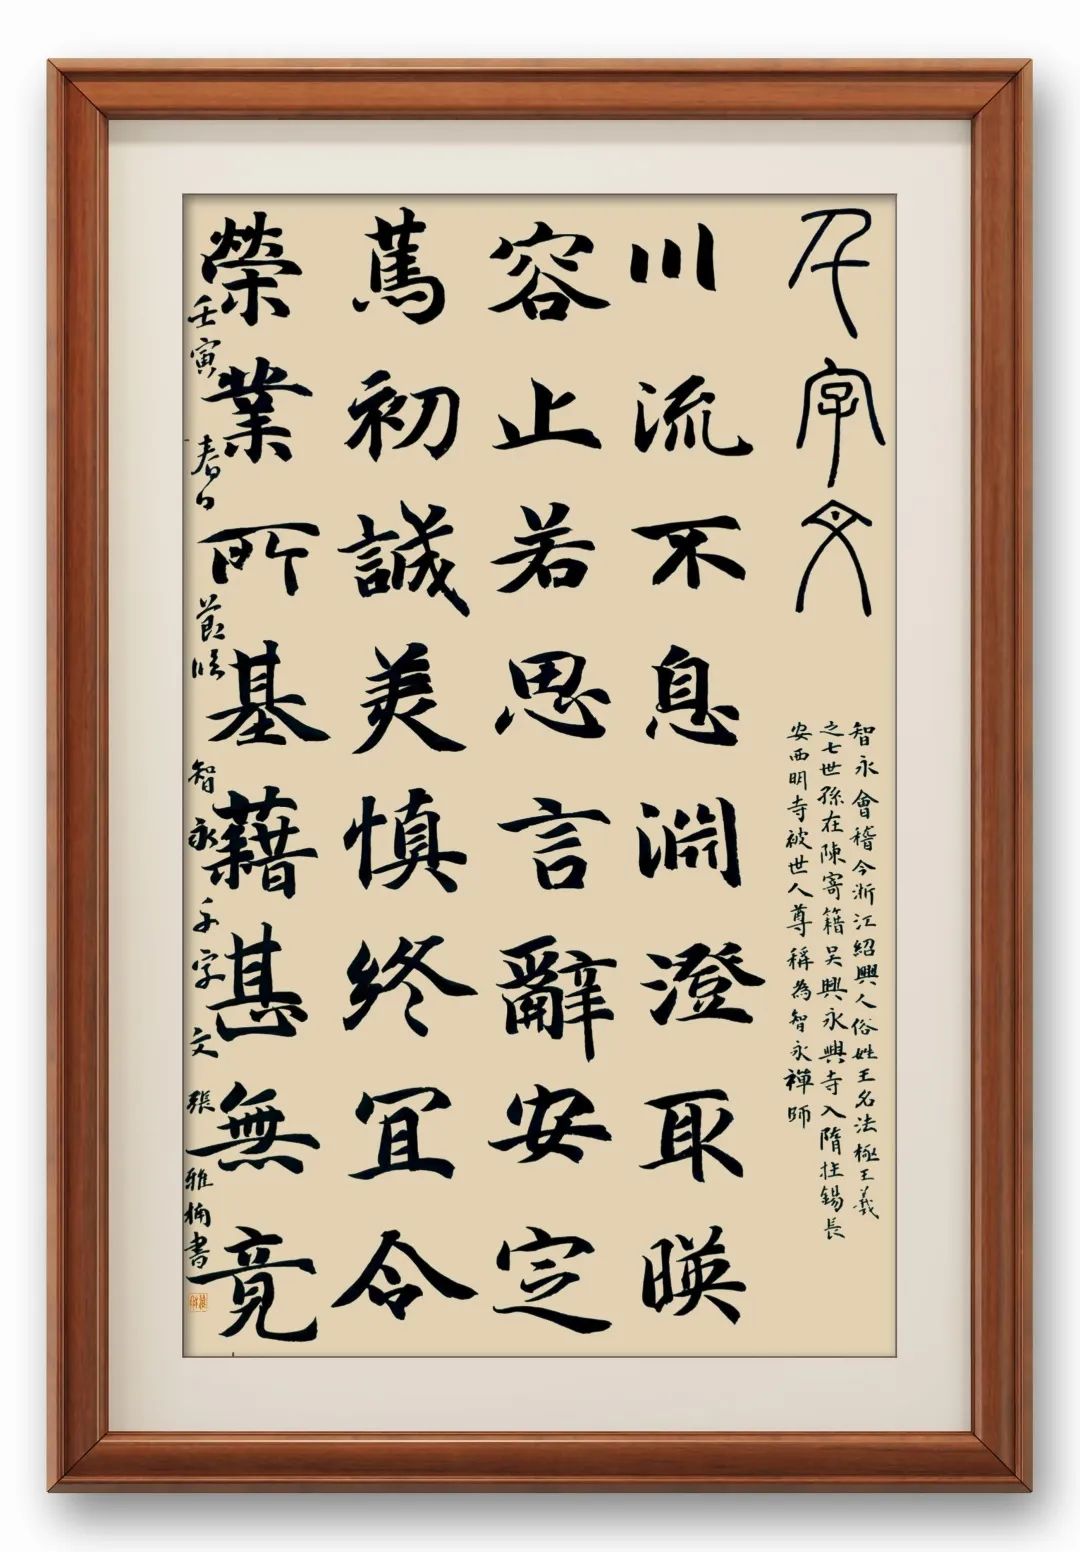 千字文
智永會稽今浙江紹興人俗姓王名法極王羲
之七世孫在陳寄籍吴興永興寺入隋住錫長
安西明寺被世人尊稱為智永禪師
川流不息淵澄取暎
容止若思言辭安定
篤初誠美慎終宜令
榮業所基藉甚無竟
壬寅春日節临智永千字文張雅楠書